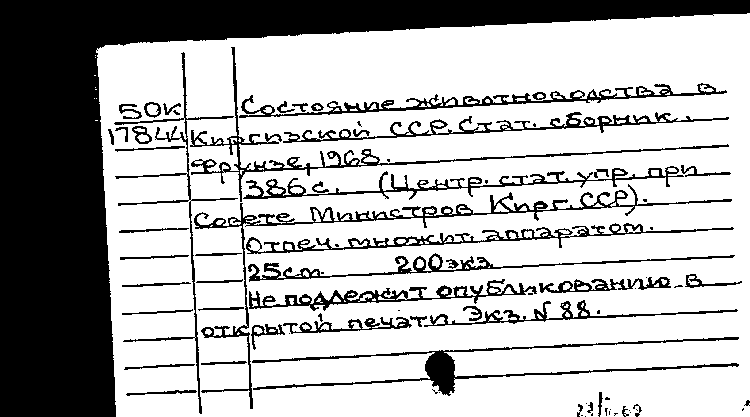 50К Состояние животноводства в
17844 Киргизской ССР. Стат. сборник.
Фрунзе, 1968.
386 с. (Центр. стат. упр. при
Совете Министров Кирг. ССР).
Отпеч. множит. аппаратом.
25см 200экз
Не подлежит опубликованию в
открытой печати. Экз. N 88.